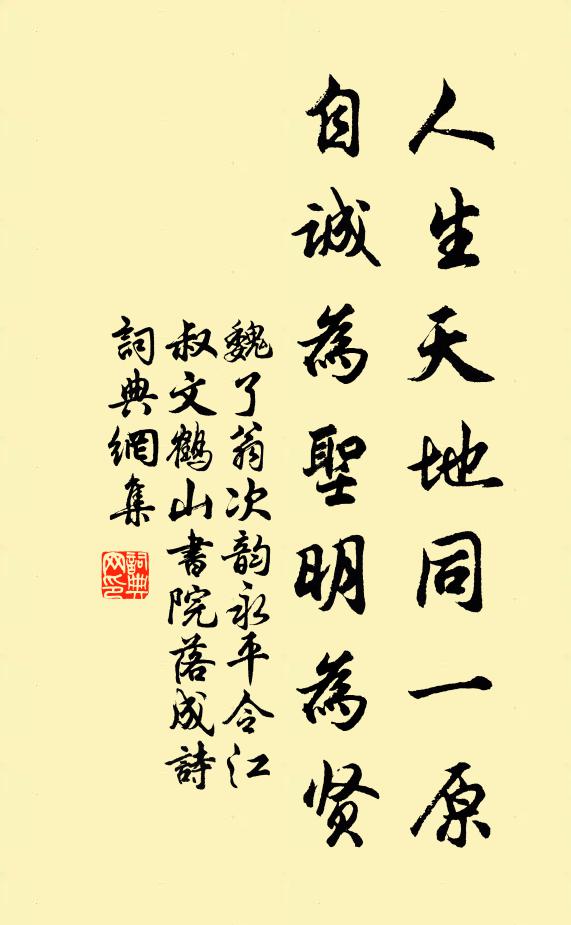 人生天地同一原
自誠為聖明為贤
魏了翁次韵永平令江
叔文鹤山書院落成詩
詞典網集
詞典
网印